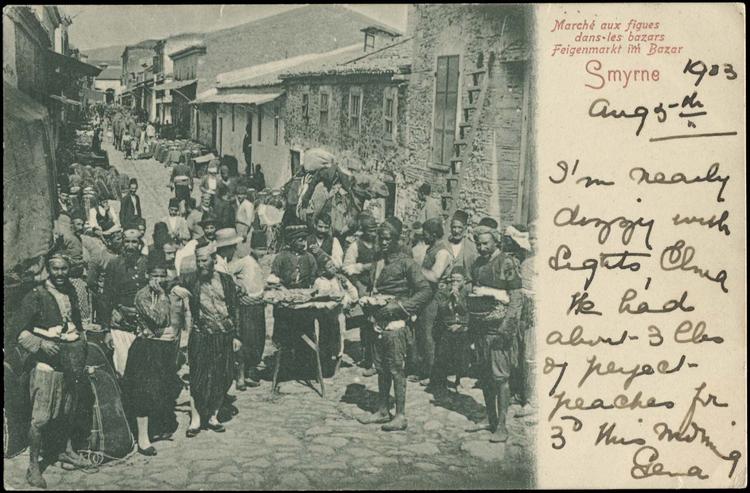 Marché aux figues
dans-les bazars
Feigenmarkt im Bazar
Smyrne
1903
Aug 5th
I'm nearly
dizzy with
sights, Elma
We had
about 3 lbs
of perfect
peaches for
3 this morning
Gena